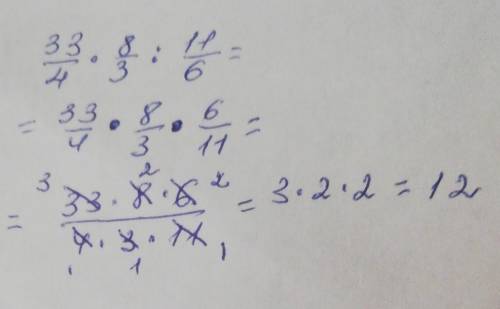 33/4 · 8/3 : 11/6 =
= 33/4 · 8/3 · 6/11 =
= 3 33 · 8 2 · 6 2 / 4 1 · 3 1 · 11 1 = 3 · 2 · 2 = 12